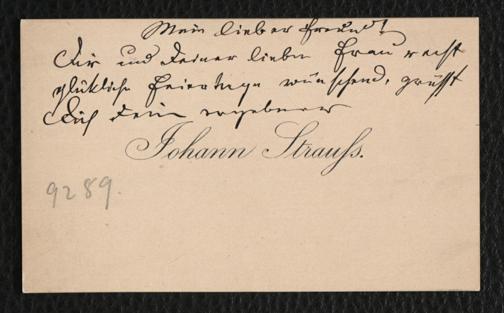 Mein lieber Freund!
Dir und Deiner lieben Frau recht
glückliche Feiertage wünschend, grüßt
Dich Dein ergebener
Johann Strauss.
9289.